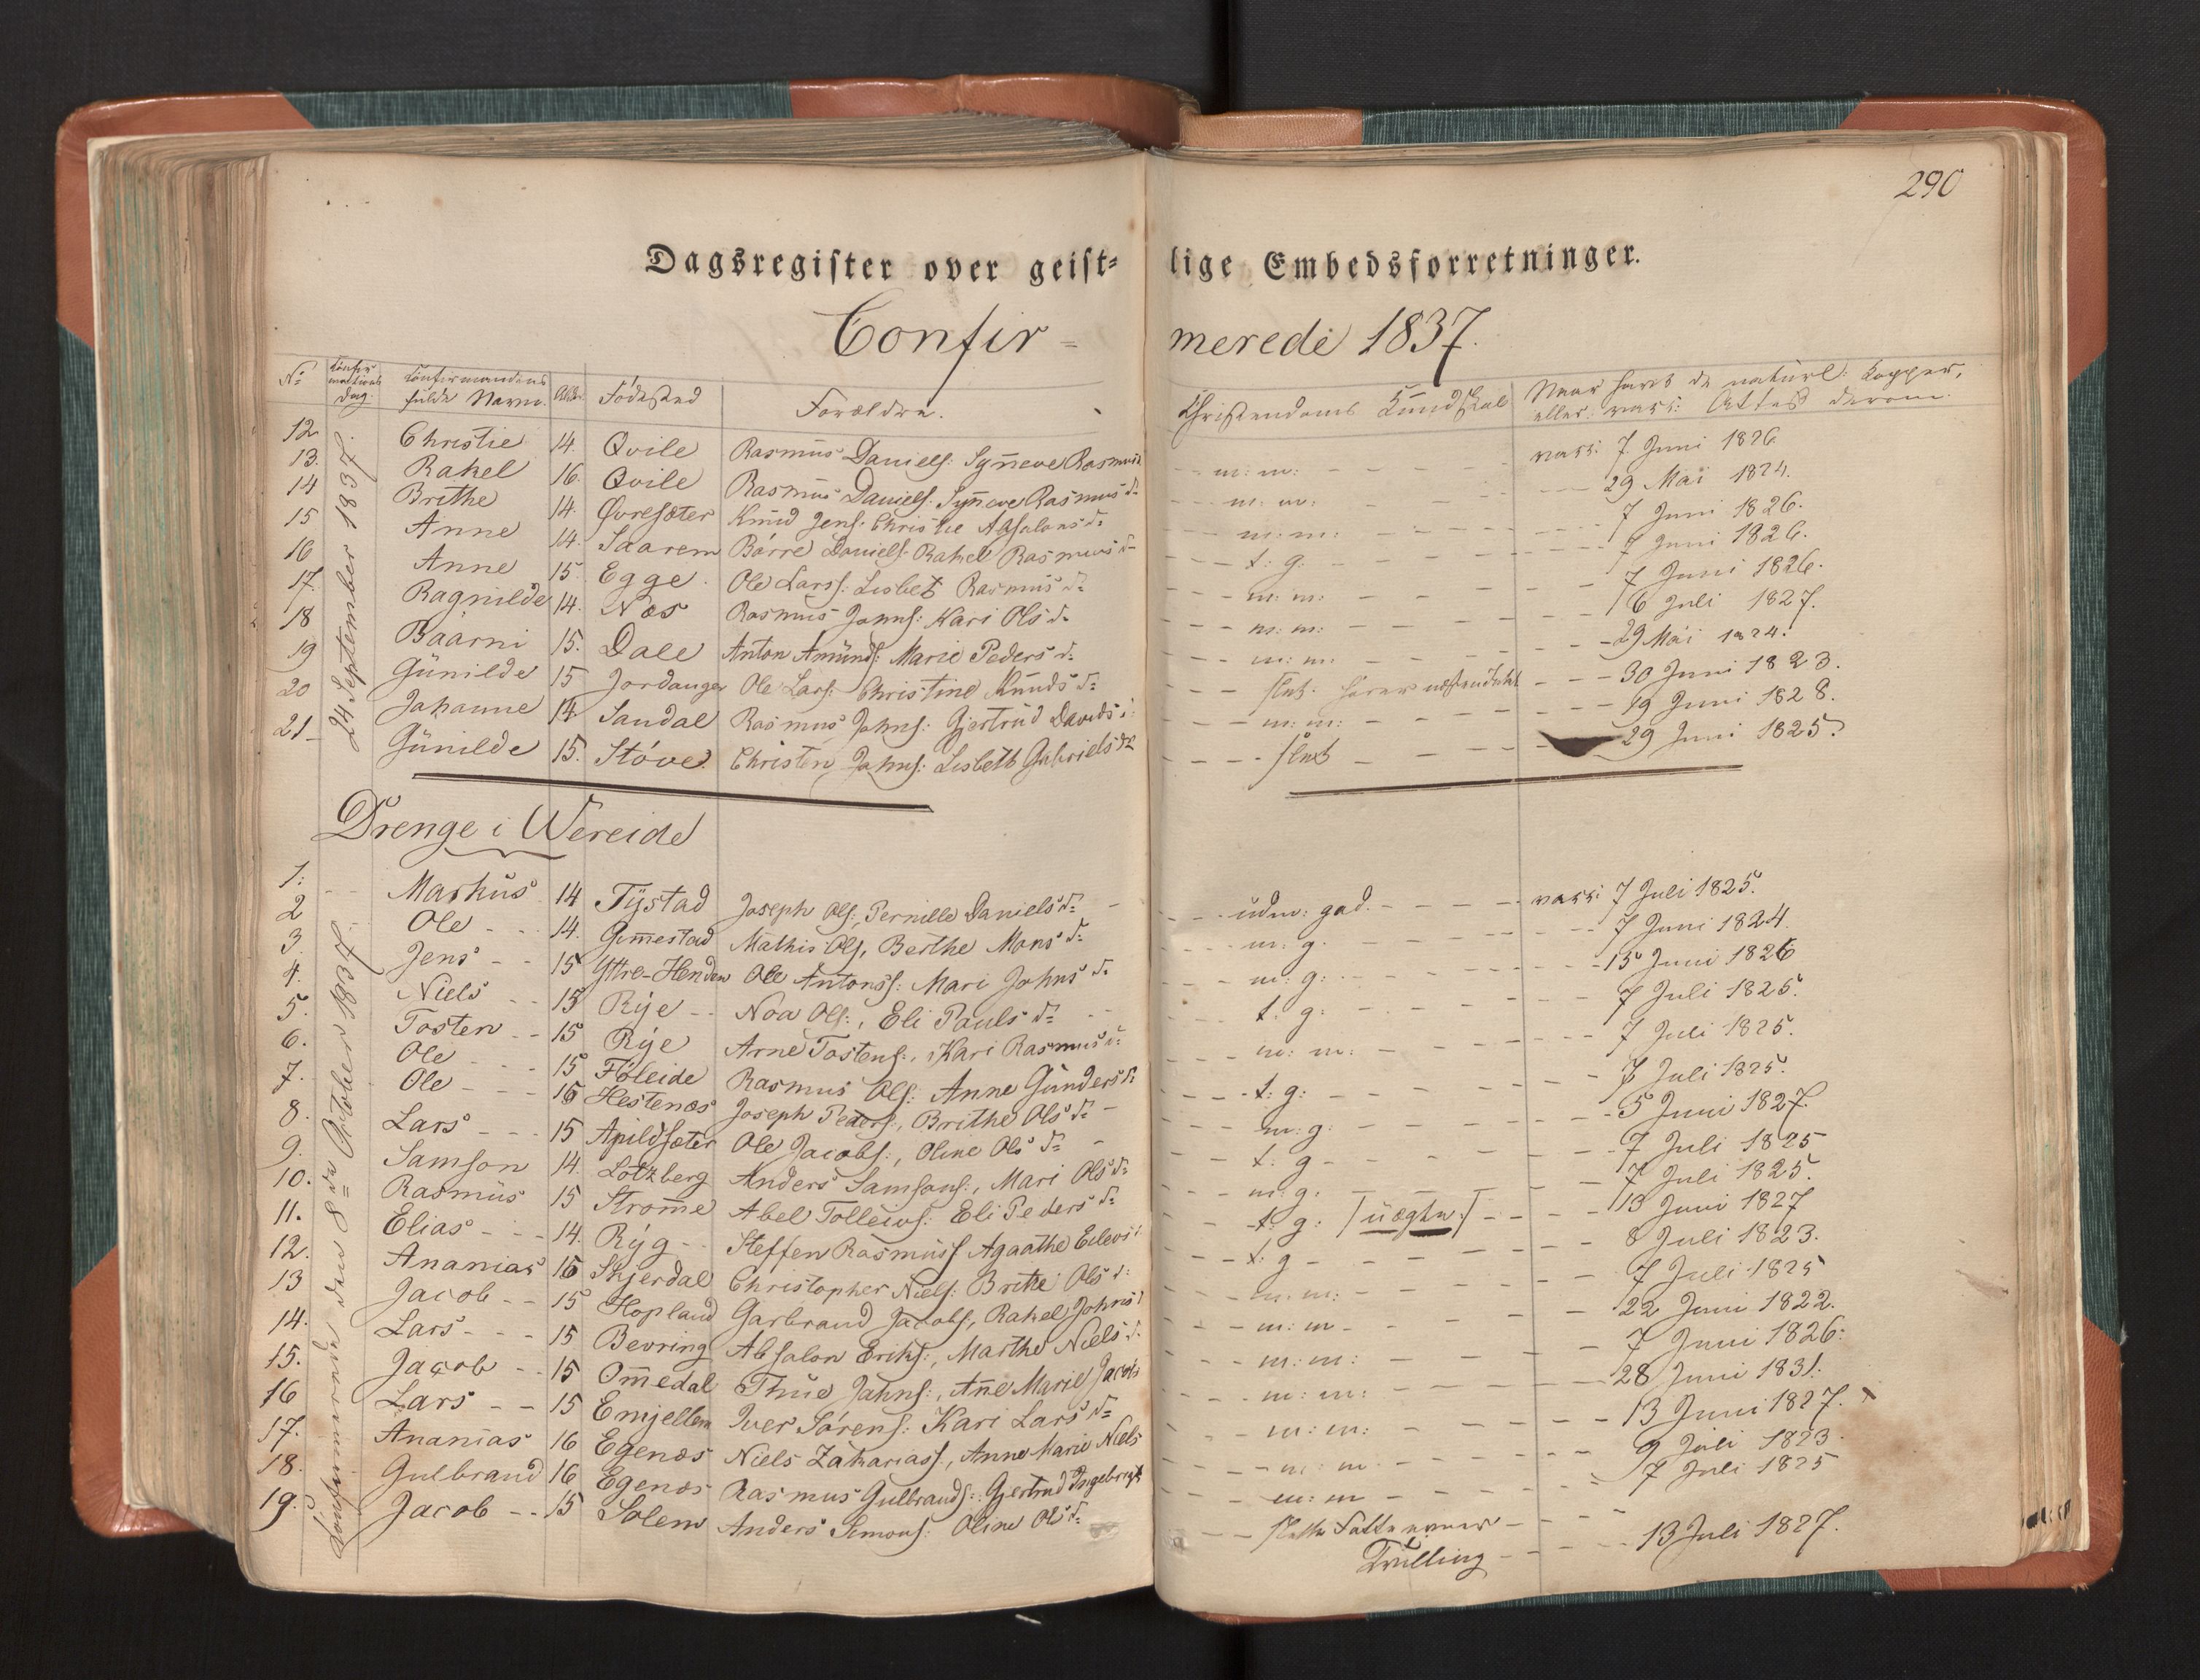 290
Dagsregister over geist= lige Embedsforretninger.
Confir= merede 1837.
No Confirmations Dag. Confirmandens fulde Navn. Alder Födested Forældre. Christendoms Kundskab Naar havt de naturl: Kopper, eller vacc: Attest derom.
24 September 1837.
12 Christie 14. Qvile Rasmus Daniels: Syneve Rasmusd. m: m: vacc: 7 Juni 1826
13. Rakel 16. Qvile Rasmus Daniels: Syneve Rasmusd: m: m: 29 Mai 1824.
14 Brithe 14. Qvresæter Knud Jens: Christie Absalonsd: m: m: 7 Juni 1826.
15 Anne 14. Saarem Börre Daniels: Rakel Rasmusd: t: g: 7 Juni 1826.
16 Anne 15. Egge Ole Larss: Lisbet Rasmusd: m: m: 7 Juni 1826.
17. Ragnilde 14. Næs Rasmus Johns: Kari Olsd: m: m: 6 Juli 1827.
18 Baarni 15. Dale Anton Amunds: Marie Pedersd: m: m: 29 Mai 1824.
19 Günilde 15 Jordanger Ole Lars: Christine Knudsd: slet. 30 Juni 1823.
20 Johanne 14 Sandal Rasmus Johns: Gjertrud Davidsd: m: m: 19 Juni 1828.
21 Günilde 15. Stöve Christen Johns: Lisbeth Gabrielsd: slet 29 Juni 1825.
Drenge i Wereide
Confirmerede den 8de October 1837.
1: Markus 14 Tystad Joseph Ols, Pernille Danielsd: udm: god. vacc: 7 Juli 1825.
2 Ole 14. Gimestad Mathis Ols, Berthe Monsd: m. g. 7 Juni 1824.
3. Jens 15 Ytre-Henden Ole Antons: Mari Johnsd: m. g: 15 Juni 1826
4. Niels 15 Rye Noa Ols:, Eli Paulsd: t. g: 7 Juli 1825.
5. Tosten 15 Rye Arne Tostens:, Kari Rasmusd: m: m: 7 Juli 1825.
6. Ole 15 Föleide Rasmus Ols: Anne Gundersd: t: g: 7 Juli 1825.
7. Ole 16 Hestenæs Joseph Peders:, Brithe Olsd: m: g: 5 Juni 1827.
8. Lars 15 Apildsæter Ole Jacobs:, Oline Olsd: t: g 7 Juli 1825
9. Samson 14. Lotzberg Anders Samsons:, Mari Olsd: m: g: 7 Juli 1825.
10. Rasmus 15 Strome Abel Tollews: Eli Pedersd: t: g: /uægte./ 13 Juni 1827
11. Elias 14. Ryg Steffen Rasmuss Agaathe Eilevsd: t: g 8 Juli 1823.
12. Ananias 16 Skjerdal Christopher Niels: Brithe Olsd: m: m: 7 Juli 1825
13 Jacob 15 Hopland Garbrand Jacobs, Rakel Johnsd: m: m 22 Juni 1822.
14. Lars 15 Bevring Absalon Eriks:, Marthe Nielsd: m: m: 7 Juni 1826:
15. Jacob 15 Omedal Thue Johns:, Ane Marie Jacobs m: m: 28 Juni 1831.
16 Lars 15 Emjellem Iver Sörens: Kari Larsd: m: m: 13 Juni 1827.
17. Ananias 16 Egenæs Niels Zakariass, Anne Marie Niels m: m 9 Juli 1823.
18. Gulbrand 16 Egenæs Rasmus Gulbrands: Gjertrud Ingebrigt m: m 7 Juli 1825
19. Jacob 15 Solem Anders Simons: Oline Olsd: slette Tulling 13 Juli 1827.